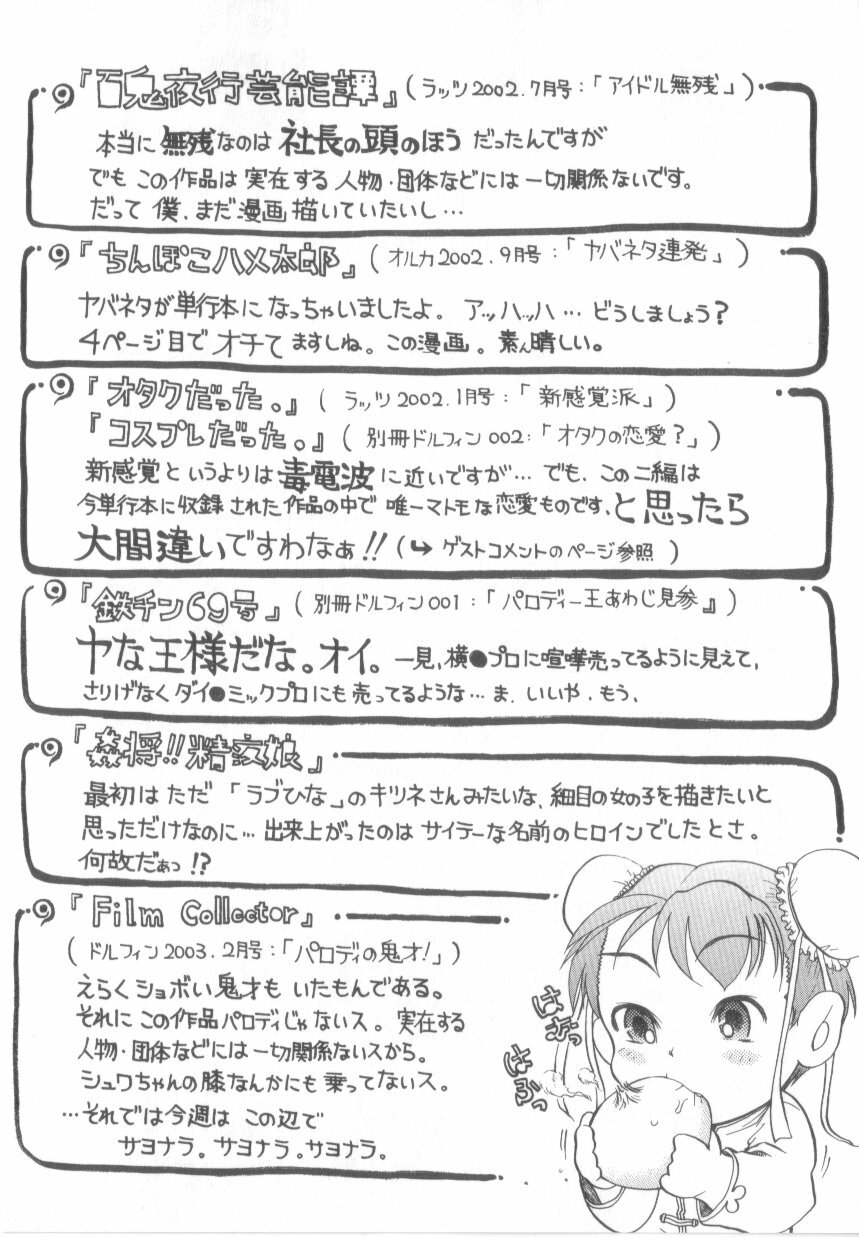 『百鬼夜行芸能譚』(ラッツ2002.7月号:「アイドル無残」)
本当に無残なのは社長の頭のほうだったんですが
でもこの作品は実在する人物・団体などには一切関係ないです。
だって僕、まだ漫画描いていたいし…
『ちんぽこハメ太郎』(オルカ2002.9月号:「ヤバネタ連発」)
ヤバネタが単行本になっちゃいましたよ。アッハッハ…どうしましょう?
4ページ目でオチてますしね。この漫画。素ん晴しい。
『オタクだった。』(ラッツ2002.1月号:「新感覚派」)
『コスプレだった。』(別冊ドルフィン002:「オタクの恋愛?」)
新感覚というよりは毒電波に近いですが…でも、この二編は
今単行本に収録された作品の中で唯一マトモな恋愛ものです、と思ったら
大間違いですわなぁ!!(↪ゲストコメントのページ参照)
『鉄チン69号』(別冊ドルフィン001:「パロディー王あわじ見参』)
ヤな王様だな。オイ。一見、横●プロに喧嘩売ってるように見えて、
さりげなくダイ●ミックプロにも売ってるような…ま、いいや、もう、
『姦将!!精女娘』
最初はただ「ラブひな」のキツネさんみたいな、細目の女の子を描きたいと
思っただけなのに…出来上がったのはサイテーな名前のヒロインでしたとさ。
何故だぁっ!?
『Film Collector』
(ドルフィン2003.2月号:「パロディの鬼才!」)
えらくショボい鬼才もいたもんである。
それにこの作品パロディじゃないス。実在する
人物・団体などには一切関係ないスから。
シュワちゃんの膝なんかにも乗ってないス。
…それでは今週はこの辺で
サヨナラ。サヨナラ。サヨナラ。
はふっ
はふっ